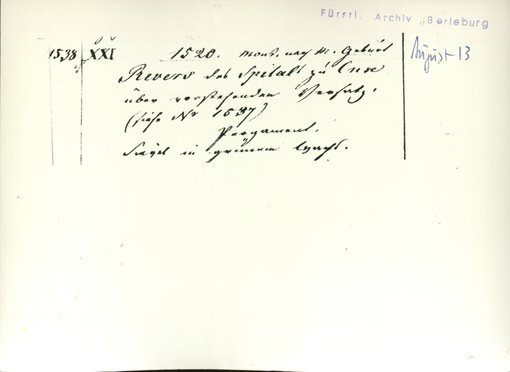 Fürstl. Archiv Berleburg
1538 XXI 1520. Mont. nach M. Geburt August 13
Revers des Spitals zu
über vorstehenden Versatz.
(siehe Nr 1537)
Pergament.
Siegel in grünem Wachs.